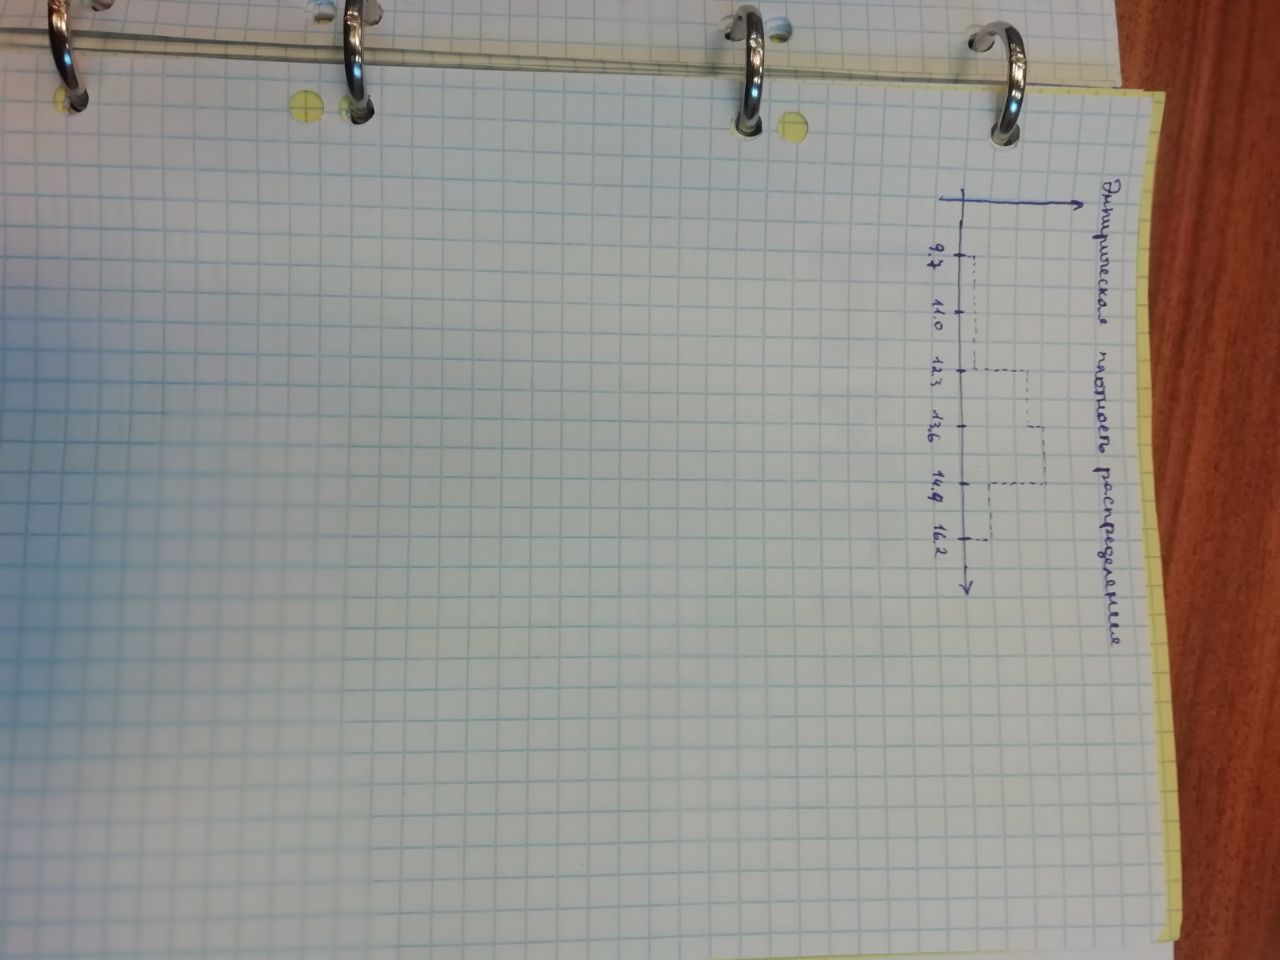 Эмпирическая плотность распределения
9.7 11.0 12.3 13.6 14.9 16.2